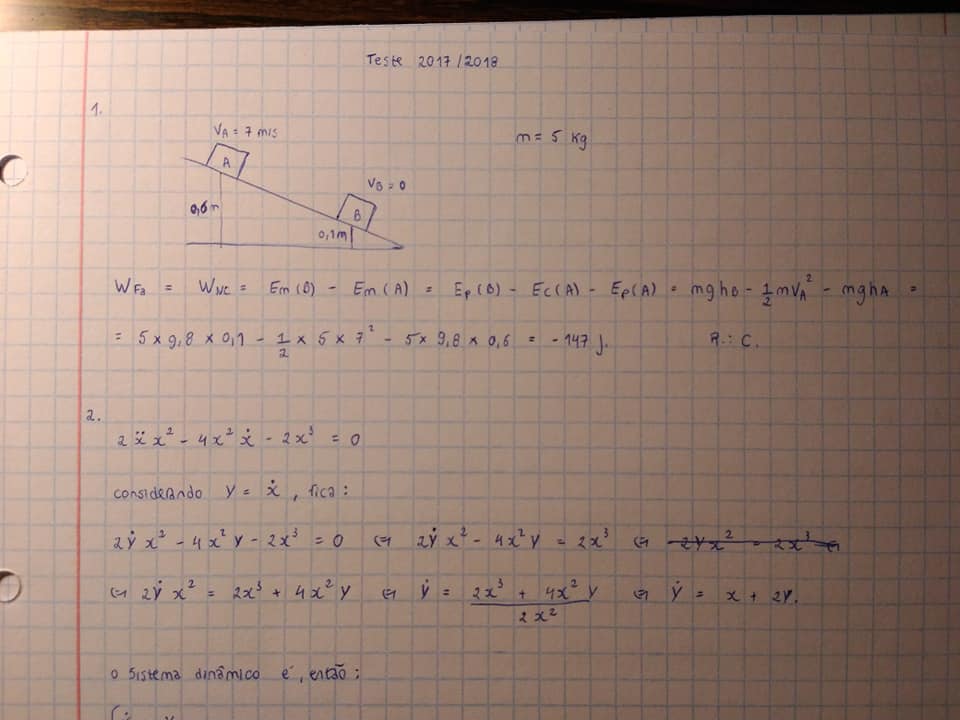 Teste 2017/2018
1.
VA = 7 m/s
m = 5 kg
A
VB = 0
0,6m
B
0,1m
WFa = WNC = Em(B) - Em(A) = Ep(B) - Ec(A) - Ep(A) = mghB - 1/2 mVA² - mghA =
= 5 x 9,8 x 0,1 - 1/2 x 5 x 7² - 5 x 9,8 x 0,6 = - 147 J. R.: C.
2.
2ẍx² - 4x²ẋ - 2x³ = 0
considerando y = ẋ, fica:
2ẏx² - 4x²y - 2x³ = 0 ⇔ 2ẏx² - 4x²y = 2x³ ⇔
⇔ 2ẏx² = 2x³ + 4x²y ⇔ ẏ = (2x³ + 4x²y)/2x² ⇔ ẏ = x + 2y.
o sistema dinâmico é, então: